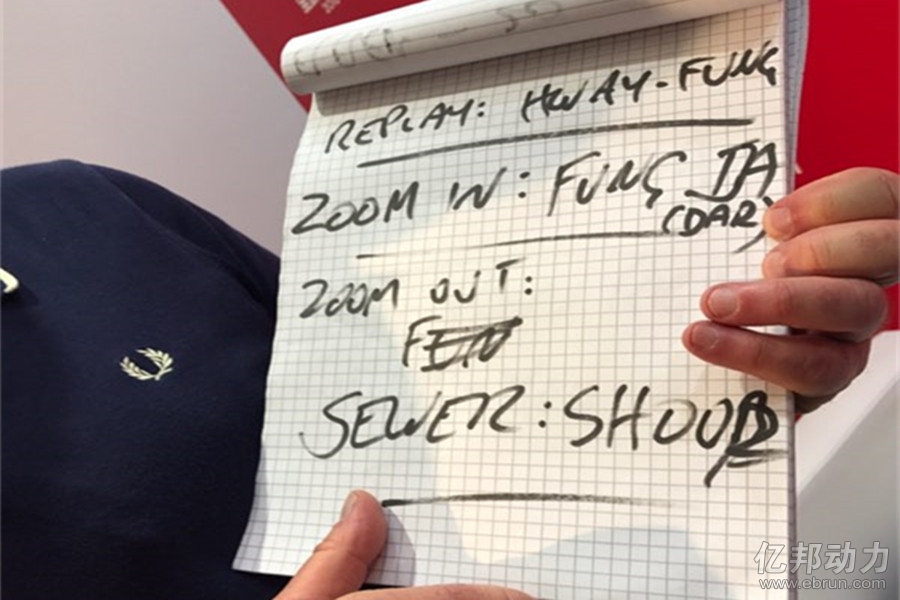 REPLAY: HWAY-FUNG
ZOOM IN: FUNG DA
(DAR)
ZOOM OUT:
SEWER: SHOUP
亿邦动力
www.ebrun.com